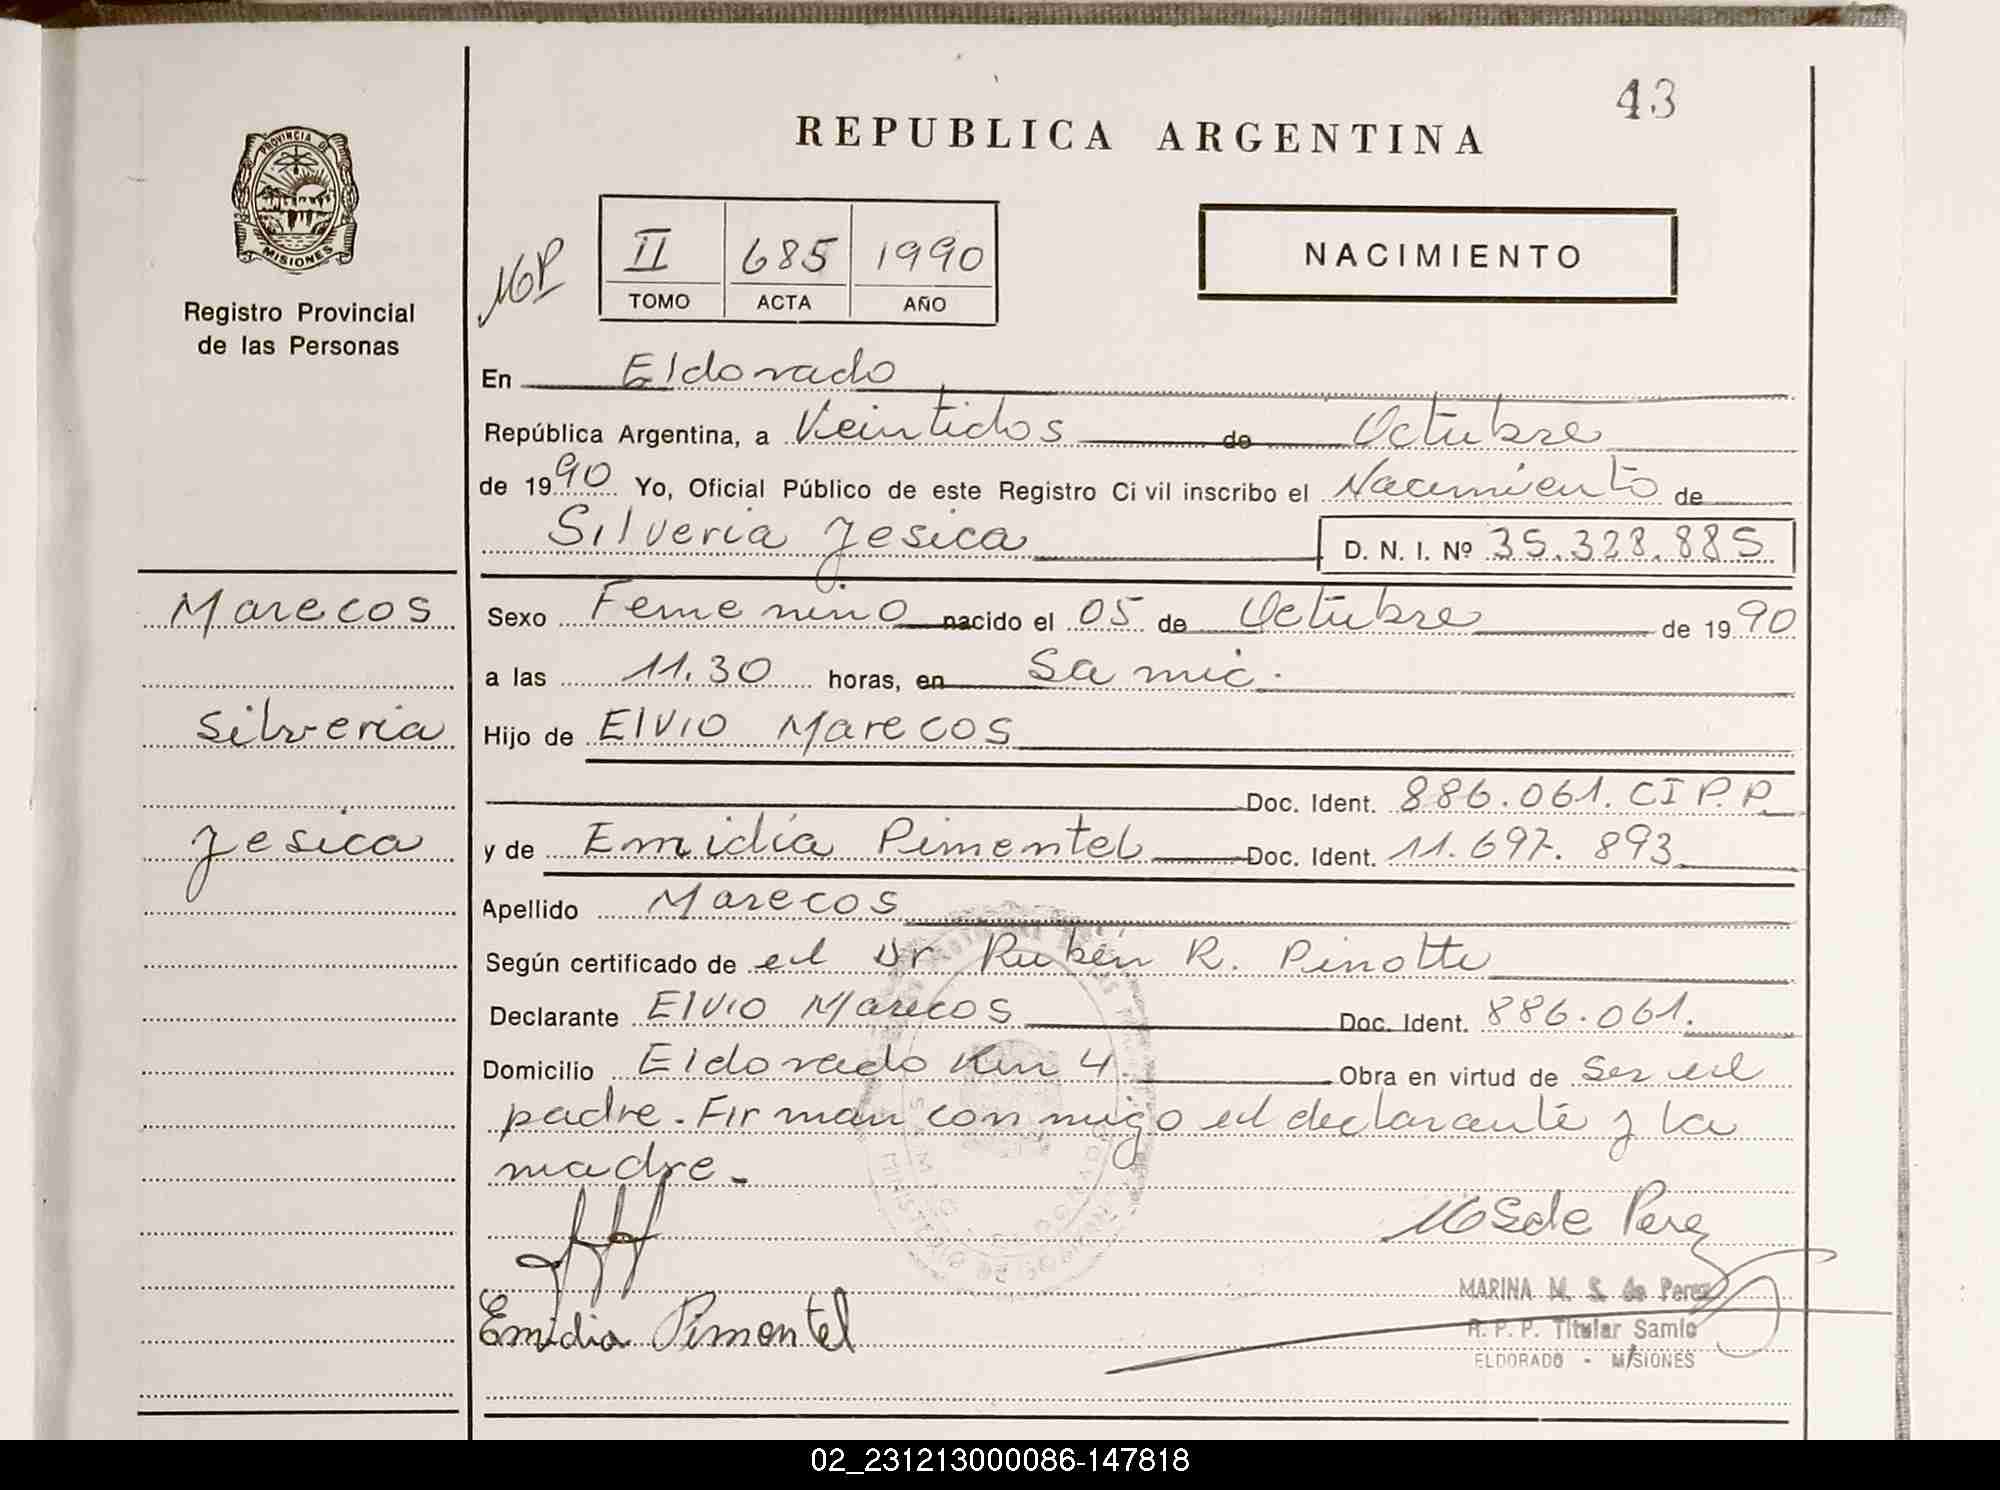 43
REPUBLICA ARGENTINA
PROVINCIA DE
MISIONES
Registro Provincial
de las Personas
II 685 1990
TOMO ACTA AÑO
NACIMIENTO
En Eldorado
República Argentina, a Veintidos de Octubre
de 1990 Yo, Oficial Público de este Registro Civil inscribo el Nacimiento de
Silveria Jesica D. N. I. Nº 35.328.885
Marecos
Silveria
Jesica
Sexo Femenino nacido el 05 de Octubre de 1990
a las 11.30 horas, en Samic.
Hijo de Elvio Marecos
Doc. Ident. 886.061. CI P.P.
y de Emidia Pimentel Doc. Ident. 11.697.893
Apellido Marecos
Según certificado de el Dr Rubén R. Pinotti
Declarante Elvio Marecos Doc. Ident. 886.061.
Domicilio Eldorado Km 4 Obra en virtud de ser el
padre. Firman conmigo el declarante y la
madre.
Emidia Pimentel
MARINA M. S. de Perez
R. P. P. Titular Samic
ELDORADO - MISIONES
02_231213000086-147818